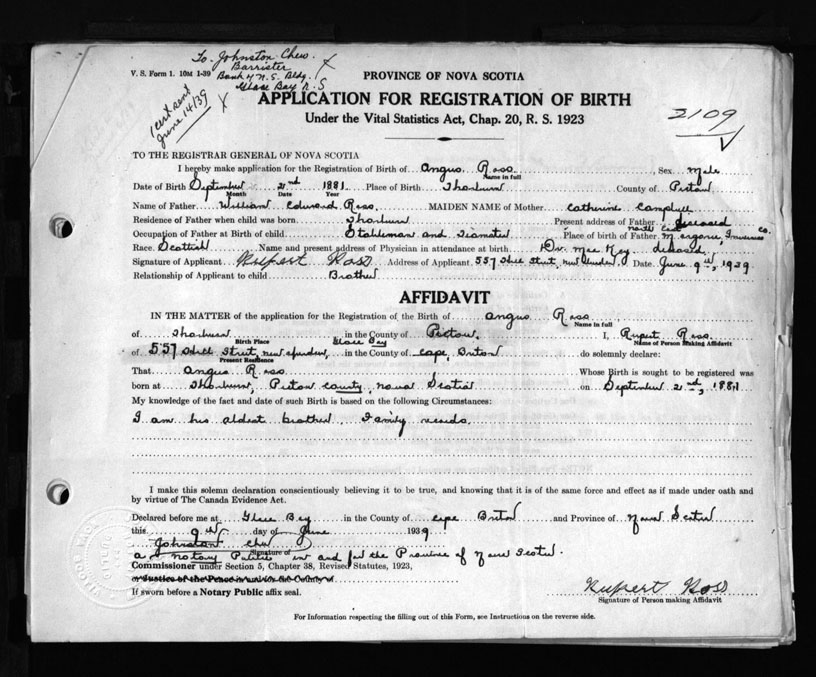 To Johnston Chew.
Barrister
V. S. Form 1. 10M 1-39 Bank of N.S. Bldg.
Glace Bay N.S
1 cert sent
June 14/39
PROVINCE OF NOVA SCOTIA
APPLICATION FOR REGISTRATION OF BIRTH
Under the Vital Statistics Act, Chap. 20, R. S. 1923
2109
TO THE REGISTRAR GENERAL OF NOVA SCOTIA
I hereby make application for the Registration of Birth of Angus Ross, Sex Male
Name in full
Date of Birth September 2nd 1881 Place of Birth Thorburn County of Pictou
Month Date Year
Name of Father William Edward Ross. MAIDEN NAME of Mother Catherine Campbell
Residence of Father when child was born Thorburn Present address of Father deceased
Occupation of Father at Birth of child and Teamster Place of birth of Father North East Margaree, Inverness Co.
Race Scottish Name and present address of Physician in attendance at birth Dr. Mac Kay
Signature of Applicant Rupert Ross Address of Applicant 557 Street, Date June 9th, 1939
Relationship of Applicant to child Brother
AFFIDAVIT
IN THE MATTER of the application for the Registration of the Birth of Angus Ross
Name in full
of Thorburn in the County of Pictou I, Rupert Ross
Birth Place Name of Person Making Affidavit
Glace Bay
of 557 Street, in the County of Cape Briton do solemnly declare:
Present Residence
That Angus Ross Whose Birth is sought to be registered was
born at Thorburn, Picton county, Nova Scotia on September 2nd, 1881
My knowledge of the fact and date of such Birth is based on the following Circumstances:
I am his aldest brother, Family records.
I make this solemn declaration conscientiously believing it to be true, and knowing that it is of the same force and effect as if made under oath and
by virtue of The Canada Evidence Act.
Declared before me at Glace Bay in the County of Cape Briton and Province of Nova Scotia
this 9th day of June 1939
Johnston Chew
Signature of
a notary Public in and for the Province of Nova Scotia.
Commissioner under Section 5, Chapter 38, Revised Statutes, 1923,
or Justice of the Peace in and for the County of
If sworn before a Notary Public affix seal.
Rupert Ross
Signature of Person making Affidavit
For Information respecting the filling out of this Form, see Instructions on the reverse side.